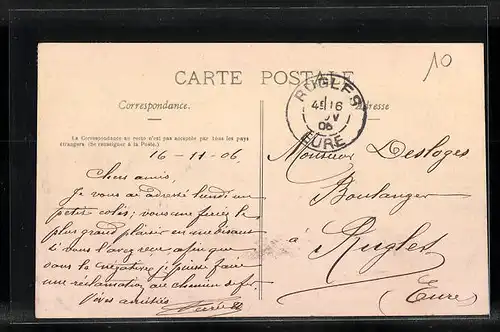 10
CARTE POSTALE
RUGLES
4E 16
06
EURE
Correspondance.
Adresse
La Correspondance au verso n'est pas acceptée par tous les pays
étrangers (Se renseigner à la Poste.)
16-11-06.
Chers amis,
Je vous ai adressé lundi un
petit colis; vous me feriez le
plus grand plaisir en me disant
si vous l'avez reçu afin que
dans la négative je puisse faire
une réclamation au chemin de fer.
Vives amitiés
Monsieur Desloges
Boulanger
à Rugles
Eure